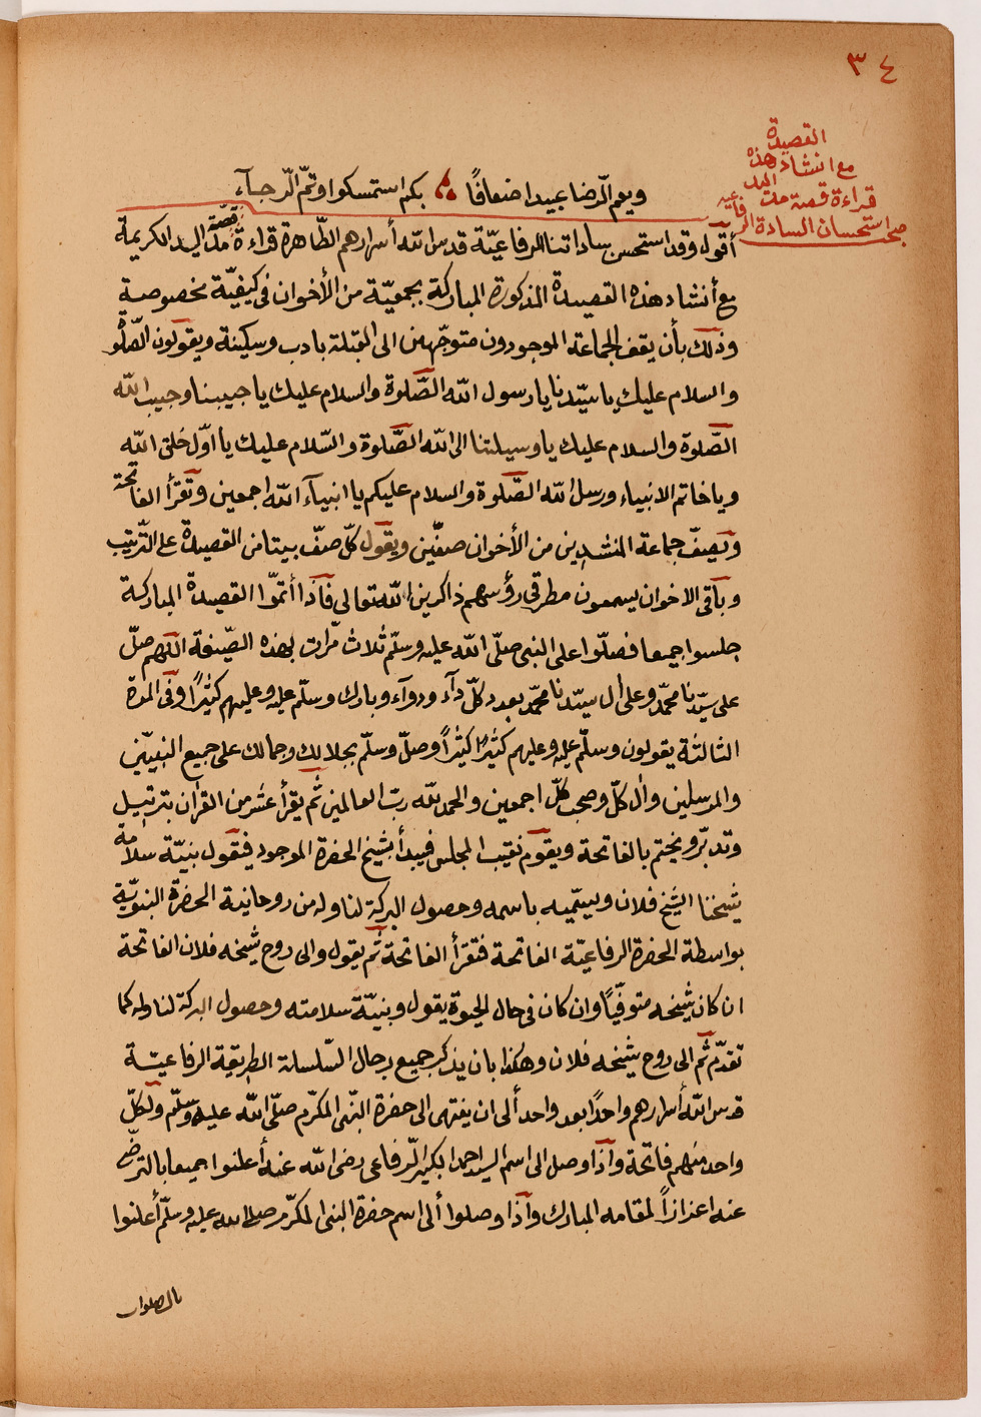 ٣٤
القصيدة
مع انشاد هذه
قراءة قصة مدّ اليد
مبحث استحسان السادة الرفاعيه
ويعم الرّضا عبيدا ضعافًا ؞ بكم استمسكوا وتمّ الرّجآء
أقول وقد استحسن ساداتنا الرفاعيّة قدس الله أسرارهم الطّاهرة قراءة قصّة مدّ اليد الكريمة
مع أنشاد هذه القصيدة المذكورة المباركة بجمعيّة من الأخوان في كيفيّة مخصوصة
وذلك بأن يقف الجماعة الموجودون متوجّهين الى القبلة بادب وسكينة ويقولون الصّلوة
والسلام عليك يا سيّدنا يا رسول الله الصّلوة والسلام عليك يا حبيبنا وحبيب الله
الصّلوة والسلام عليك يا وسيلتنا الى الله الصّلوة والسّلام عليك يا اوّل خلق الله
ويا خاتم الانبياء ورسل الله الصّلوة والسلام عليكم يا انبيآء الله اجمعين وتقرأ الفاتحة
وتصفّ جماعة المنشدين من الأخوان صفّين ويقول كلّ صفّ بيتا من القصيدة على التّرتيب
وباقى الاخوان يسمعون مطرقى رؤسهم ذاكرين الله تعالى فآذا أتمّوا القصيدة المباركة
جلسوا جميعا فصلّوا على النبى صلّى الله عليه وسلّم ثلاث مرّات بهذه الصّيغة اللّهم صلّ
على سيّدنا محمّد وعلى ال سيّدنا محمّد بعدد كلّ دآء ودوآء وبارك وسلّم عليه وعليهم كثيرًا وفى المرة
الثالثة يقولون وسلّم عليه وعليهم كثيرًا كثيرًا وصلّ وسلّم بجلالك وجمالك على جميع النبيّين
والمرسلين وال كلّ وصحب كلّ اجمعين والحمد لله ربّ العالمين ثم يقرأ عشر من القرأن بترتيل
وتدبّر ويختم بالفاتحة ويقوم نقيب المجلس فيبدأ بشيخ الحضرة الموجود فيقول بنيّة سلامة
شيخنا الشيخ فلان ويسمّيه باسمه وحصول البركة لنا وله من روحانية الحضرة النبويّة
بواسطة الحضرة الرفاعيّة الفاتحة فتقرأ الفاتحة ثم يقول والى روح شيخه فلان الفاتحة
ان كان شيخه متوفّيًا وان كان فى حال الحيوة يقول وبنيّة سلامته وحصول البركة لنا وله كما
تقدّم ثم الى روح شيخه فلان وهكذا بان يذكر جميع رجال السّلسلة الطريقة الرفاعيّة
قدس الله أسرارهم واحدًا بعد واحد ألى ان ينتهى الى حضرة النّبى المكرّم صلّى الله عليه وسلّم ولكلّ
واحد منهم فاتحة وآذا وصل الى اسم السيد احمد الكبير الرّفاعى رضى الله عنه أعلنوا جميعا بالترضّى
عنه اعزازاً لمقامه المبارك وآذا وصلوا ألى اسم حضرة النبى المكرّم صلى الله عليه وسلّم أعلنوا
بالصلوات